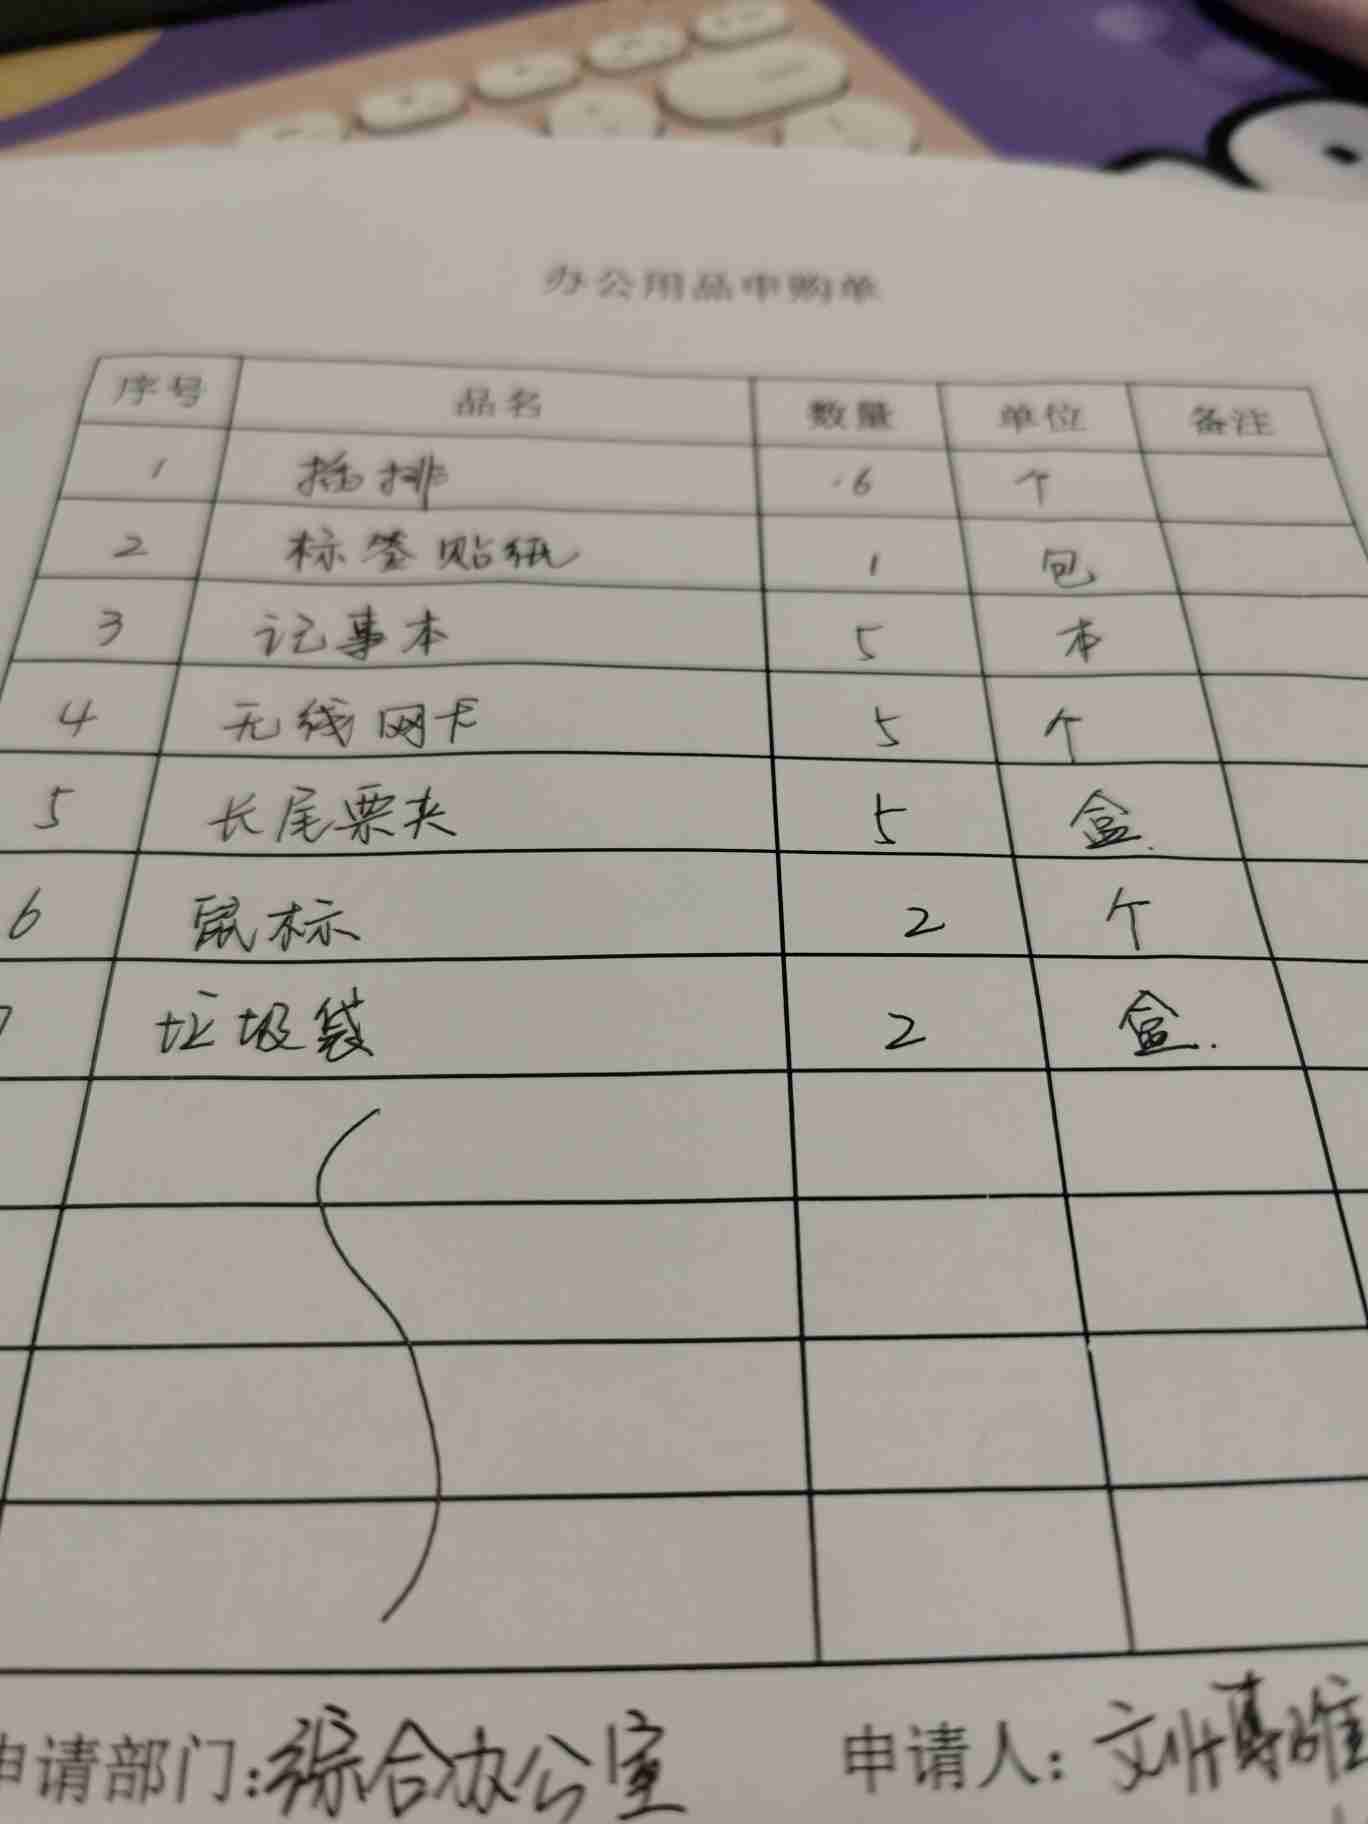 办公用品申购单
序号 品名 数量 单位 备注
1 插排 6 个
2 标签贴纸 1 包
3 记事本 5 本
4 无线网卡 5 个
5 长尾票夹 5 盒
6 鼠标 2 个
7 垃圾袋 2 盒
申请部门:综合办公室 申请人: